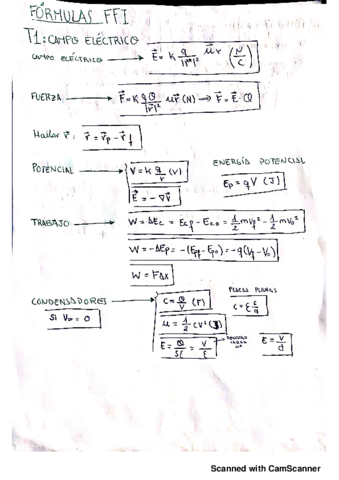 FÓRMULAS FFI
T1: CAMPO ELÉCTRICO
CAMPO ELÉCTRICO → E⃗ = K q/|r⃗|² u⃗r (N/C)
FUERZA → F⃗ = K qQ/|r⃗|² u⃗r (N) → F⃗ = E⃗·Q
Hallar r⃗ = r⃗ = r⃗p - r⃗f
POTENCIAL → V = K q/r (V)
E⃗ = -∇V⃗
ENERGÍA POTENCIAL
Ep = qV (J)
TRABAJO → W = ΔEc = Ecf - Eco = 1/2 mVf² - 1/2 mVo²
W = -ΔEp = -(Epf - Epo) = -q(Vf - Vo)
W = FΔX
CONDENSADORES → C = Q/V (F)
SI Vo = 0
PLACAS PLANAS
u = 1/2 CV² (J)
E = V/d
Scanned with CamScanner